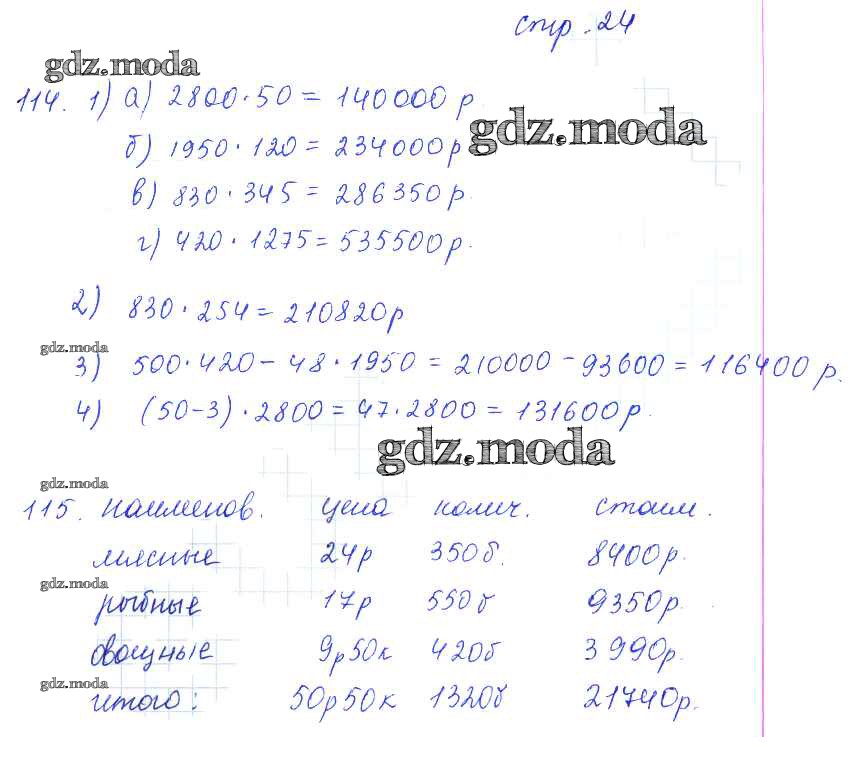 стр. 24
gdz.moda
114. 1) а) 2800 · 50 = 140000 р
gdz.moda
б) 1950 · 120 = 234000 р
в) 830 · 345 = 286350 р.
г) 420 · 1275 = 535500 р.
2) 830 · 254 = 210820 р
gdz.moda
3) 500 · 420 - 48 · 1950 = 210000 - 93600 = 116400 р.
4) (50-3) · 2800 = 47 · 2800 = 131600 р.
gdz.moda
gdz.moda
115. наименов. цена колич. стоим.
мясные 24р 350б. 8400р.
gdz.moda
рыбные 17р 550б 9350р.
овощные 9р50к 420б 3990р.
gdz.moda
итого: 50р50к 1320б 21740р.